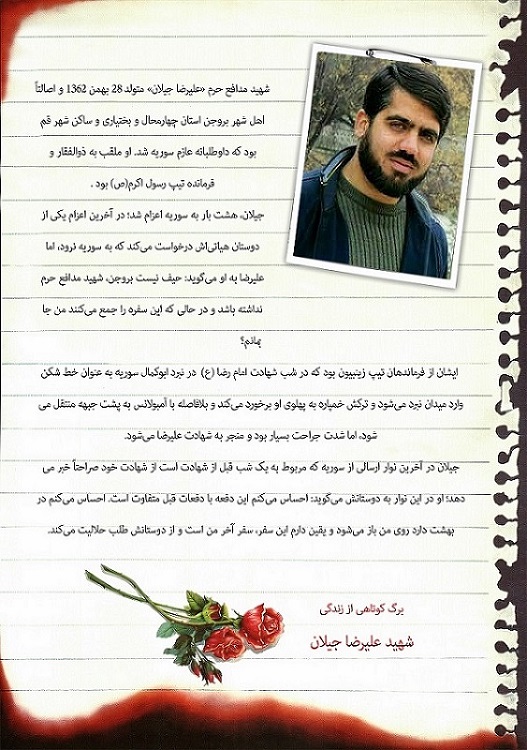 شهید مدافع حرم «علیرضا جیلان» متولد 28 بهمن 1362 و اصالتاً
اهل شهر بروجن استان چهارمحال و بختیاری و ساکن شهر قم
بود که داوطلبانه عازم سوریه شد. او ملقب به ذوالفقار و
فرمانده تیپ رسول اکرم(ص) بود .
جیلان، هشت بار به سوریه اعزام شد؛ در آخرین اعزام یکی از
دوستان هیاتی‌اش درخواست می‌کند که به سوریه نرود، اما
علیرضا به او می‌گوید: حیف نیست بروجن، شهید مدافع حرم
نداشته باشد و در حالی که این سفره را جمع می‌کنند من جا
بمانم؟
ایشان از فرماندهان تیپ زینبیون بود که در شب شهادت امام رضا (ع) در نبرد ابوکمال سوریه به عنوان خط شکن
وارد میدان نبرد می‌شود و ترکش خمپاره به پهلوی او برخورد می‌کند و بلافاصله با آمبولانس به پشت جبهه منتقل می
شود، اما شدت جراحت بسیار بود و منجر به شهادت علیرضا می‌شود.
جیلان در آخرین نوار ارسالی از سوریه که مربوط به یک شب قبل از شهادت است از شهادت خود صراحتاً خبر می
دهد؛ او در این نوار به دوستانش می‌گوید: احساس می‌کنم این دفعه با دفعات قبل متفاوت است. احساس می‌کنم در
بهشت دارد روی من باز می‌شود و یقین دارم این سفر، سفر آخر من است و از دوستانش طلب حلالیت می‌کند.
برگ کوتاهی از زندگی
شهید علیرضا جیلان